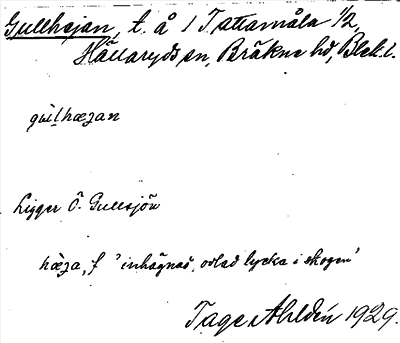 Gullhejan, t. å 1 Tattamåla 1/2,
Hällaryds sn, Bräkne hd, Blek. l.
gùl̥hæʒan
Ligger Ö. Gullsjön
hæ̀ʒa, f 'inhägnad, odlad lycka i skogen'
Tage Ahldén 1929.